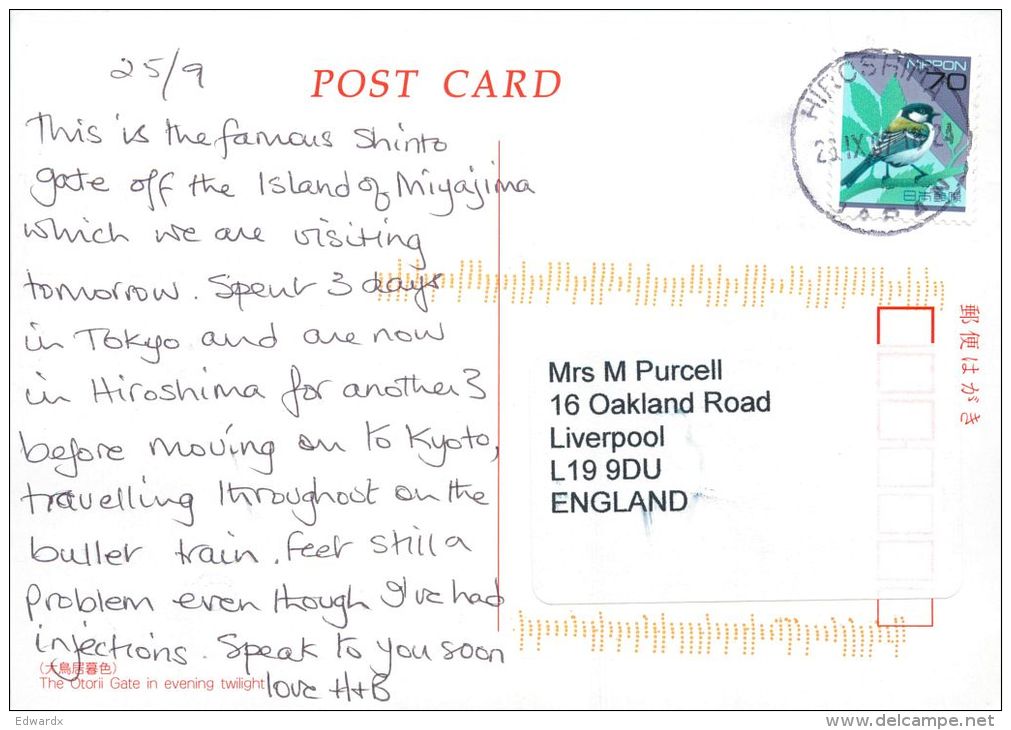 25/9
POST CARD
This is the famous Shinto
gate off the Island of Miyajima
which we are visiting
tomorrow. Spent 3 days
in Tokyo and are now
in Hiroshima for another 3
before moving on to Kyoto,
travelling throughout on the
bullet train. Feet still a
problem even though I've had
injections. Speak to you soon
love H+B
(大鳥居暮色)
The Otorii Gate in evening twilight
NIPPON
70
日本郵便
HIROSHIMA
JAPAN
郵便はがき
Mrs M Purcell
16 Oakland Road
Liverpool
L19 9DU
ENGLAND
Edwardx
www.delcampe.net